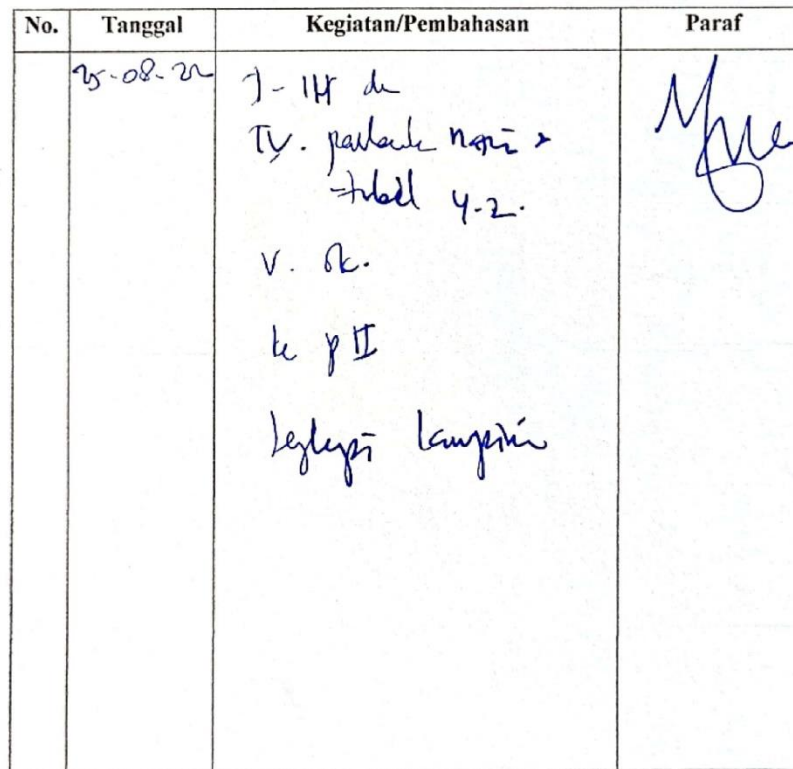 No. Tanggal Kegiatan/Pembahasan Paraf
25-08-22 I - III
IV.
tabel 4.2.
V. ok.
ke p II
Lengkapi lampiran